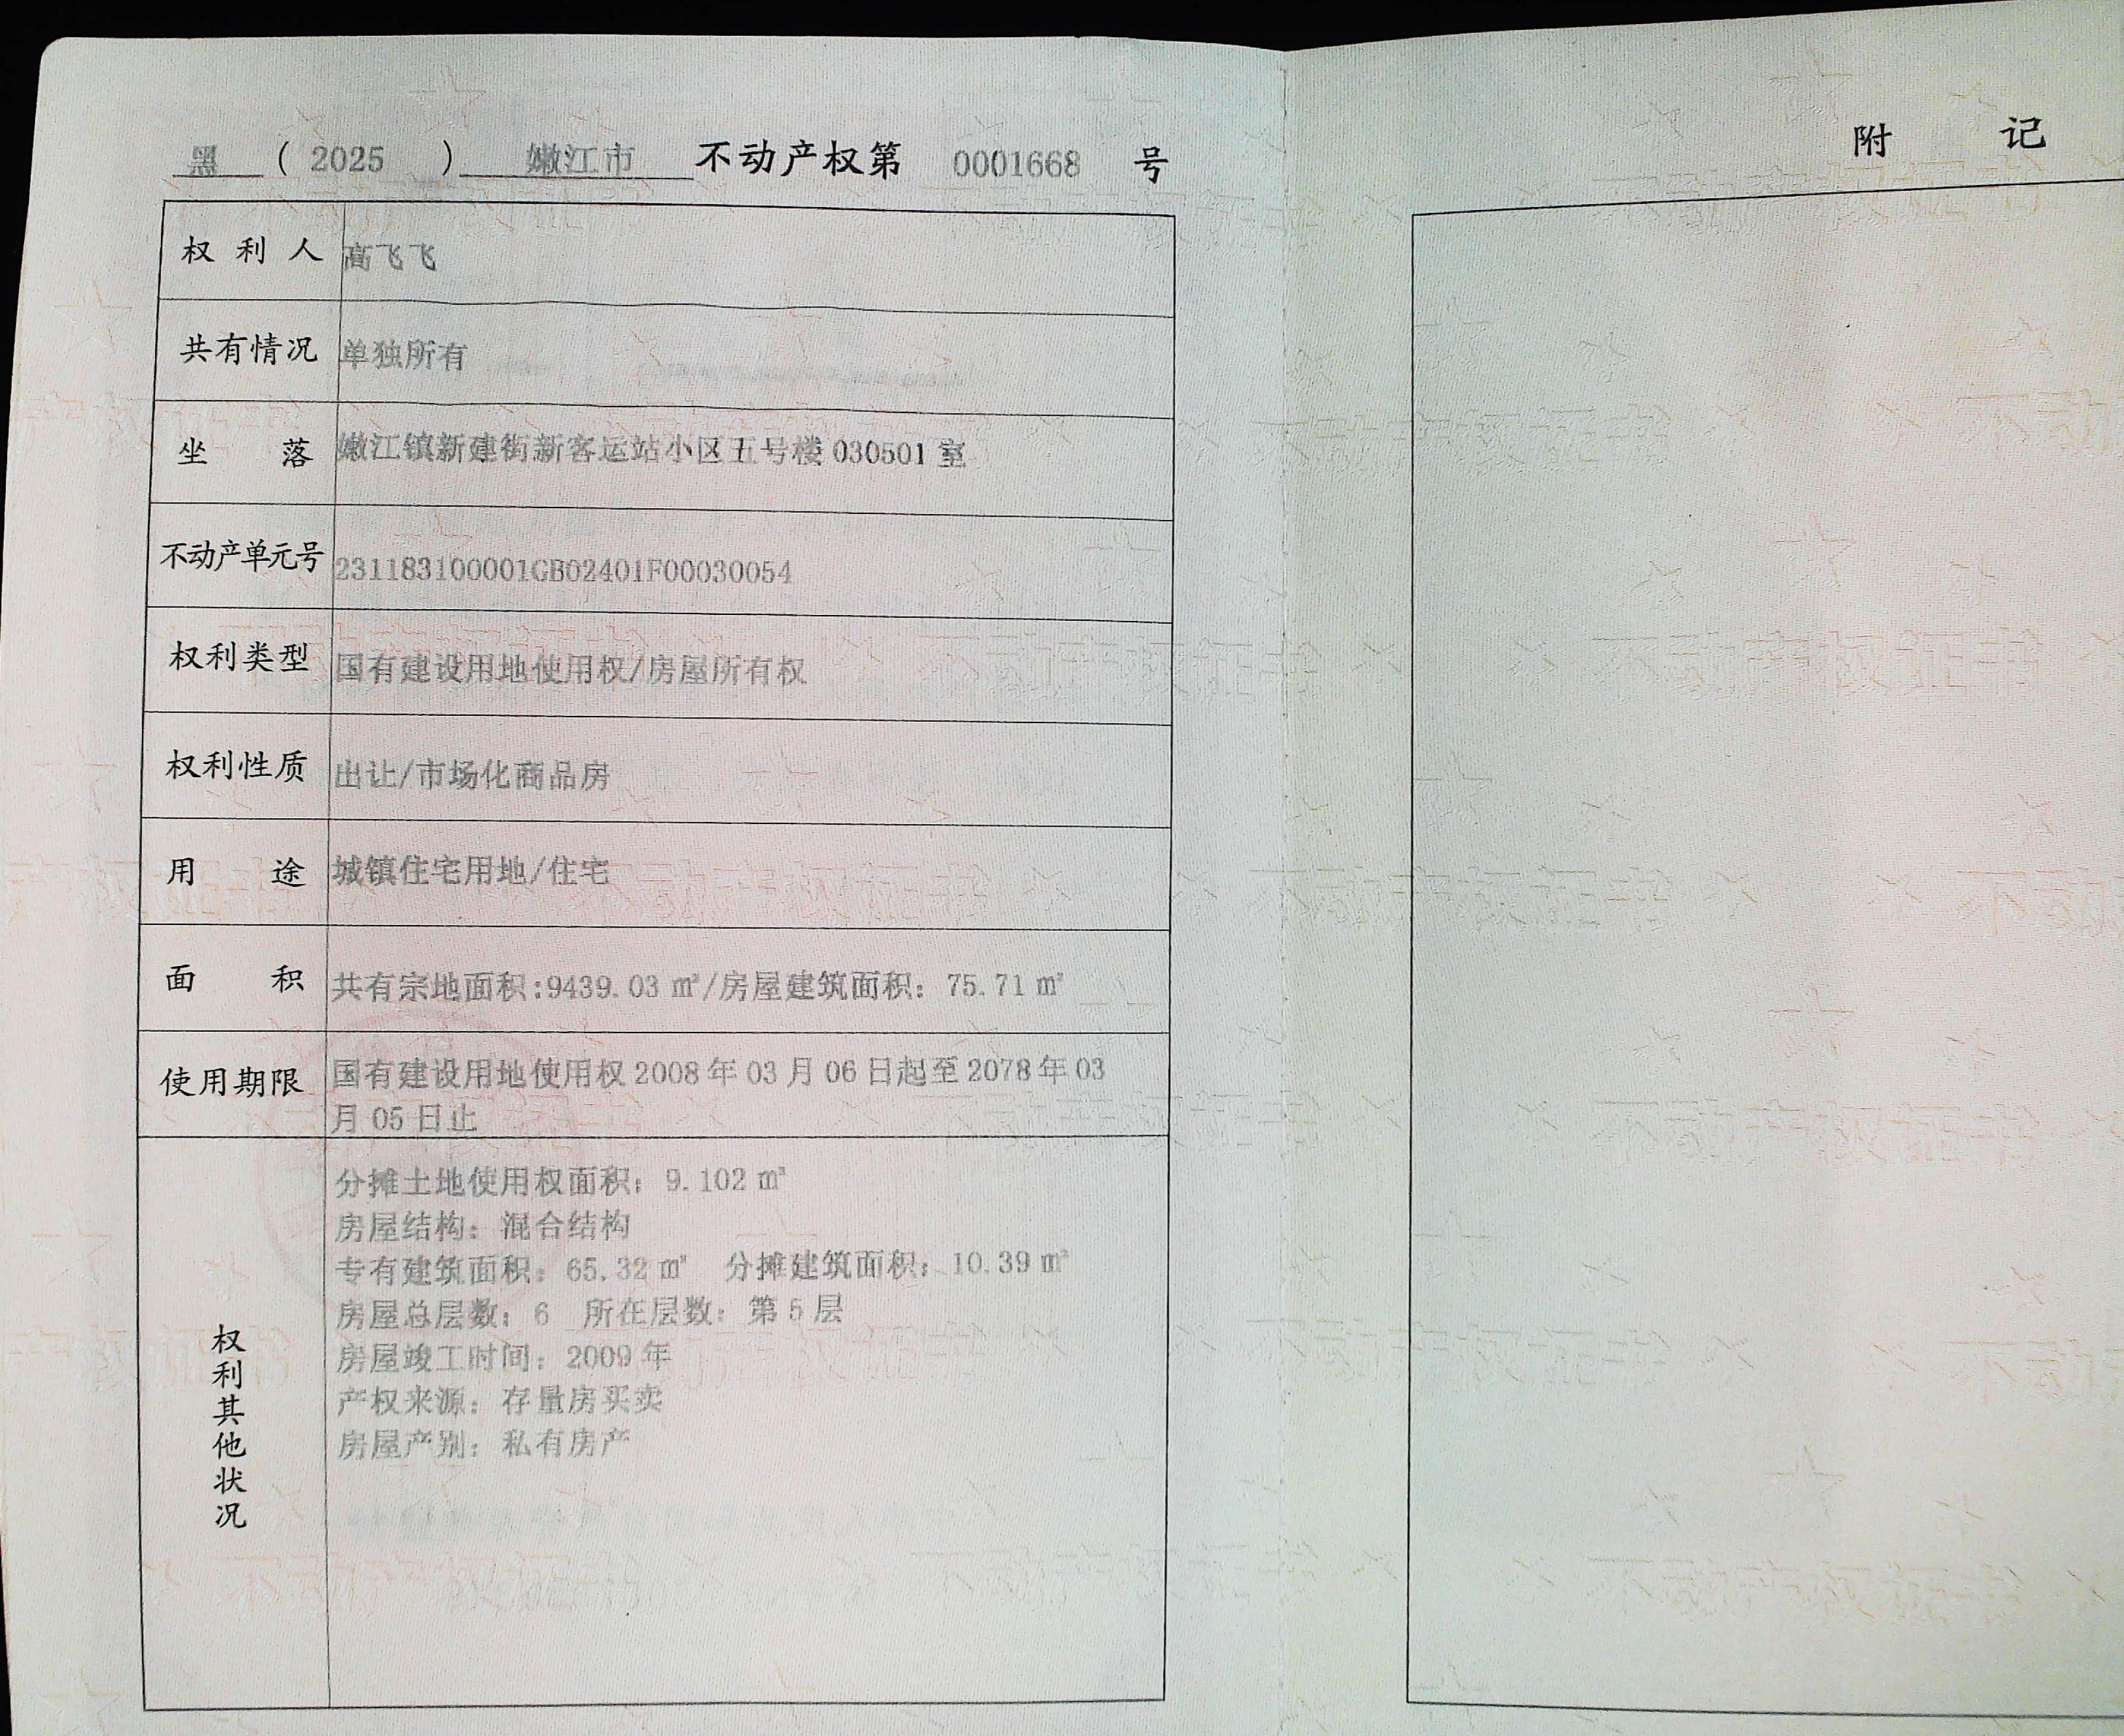 黑 ( 2025 ) 嫩江市 不动产权第 0001668 号
权利人 高飞飞
共有情况 单独所有
坐落 嫩江镇新建街新客运站小区五号楼 030501 室
不动产单元号 231183100001GB02401F00030054
权利类型 国有建设用地使用权/房屋所有权
权利性质 出让/市场化商品房
用途 城镇住宅用地/住宅
面积 共有宗地面积:9439.03 ㎡/房屋建筑面积: 75.71 ㎡
使用期限 国有建设用地使用权 2008 年 03 月 06 日起至 2078 年 03
月 05 日止
权利其他状况
分摊土地使用权面积: 9.102 ㎡
房屋结构: 混合结构
专有建筑面积: 65.32 ㎡ 分摊建筑面积: 10.39 ㎡
房屋总层数: 6 所在层数: 第 5 层
房屋竣工时间: 2009 年
产权来源: 存量房买卖
房屋产别: 私有房产
附记